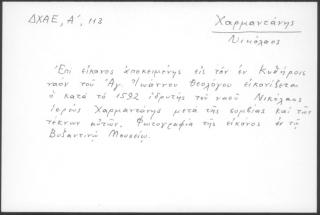 ΔΧΑΕ, Α', 113
Χαρμαντάνης
Νικόλαος
Ἐπὶ εἰκόνος ἀποκειμένης εἰς τὸν ἐν Κυθήροις
ναὸν τοῦ Ἁγ. Ἰωάννου Θεολόγου εἰκονίζεται
ὁ κατὰ τὸ 1592 ἱδρυτὴς τοῦ ναοῦ Νικόλαος
ἱερεὺς Χαρμαντάνης μετὰ τῆς συμβίας καὶ τῶν
τέκνων αὐτῶν. Φωτογραφία τῆς εἰκόνος ἐν τῷ
Βυζαντινῷ Μουσείῳ.